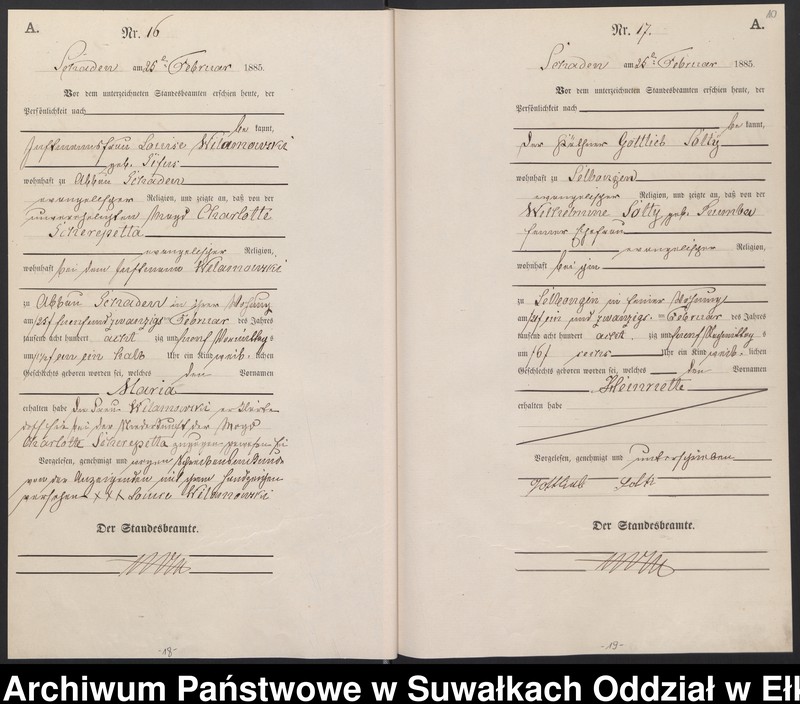 A.
Nr. 16
Schaden am 25ten Februar 1885.
Vor dem unterzeichneten Standesbeamten erschien heute, der
Persönlichkeit nach
be kannt,
Instmannsfrau Louise Wilamowski
geb.
wohnhaft zu Abbau Schaden
evangelischer Religion, und zeigte an, daß von der
unverehelichten Magd Charlotte
Scherepetta
evangelischer Religion,
wohnhaft bei dem Instmann Wilamowski
zu Abbau Schaden in ihrer Wohnung
am 25/ fuenfundzwanzigs ten Februar des Jahres
tausend acht hundert acht zig und fuenf Vormittag s
um ein halb Uhr ein Kind weib- lichen
Geschlechts geboren worden sei, welches den Vornamen
Maria
erhalten habe die Frau Wilamowski erklärte
daß sie bei der Niederkunft der Magd
Charlotte Scherepetta zugegen gewesen sei
Vorgelesen, genehmigt und wegen Schreibensunkunde
von der Anzeigenden mit ihrem Handzeichen
versehen + + + Louise Wilamowski
Der Standesbeamte.
-18-
10
A.
Nr. 17.
Schaden am 25ten Februar 1885.
Vor dem unterzeichneten Standesbeamten erschien heute, der
Persönlichkeit nach
be kannt,
der Käthner Gottlieb Solty
wohnhaft zu Selbongen
evangelischer Religion, und zeigte an, daß von der
Wilhelmine Solty geb.
seiner Ehefrau
evangelischer Religion,
wohnhaft bei ihm
zu Selbongen in seiner Wohnung
am 21/ ein und zwanzigs ten Februar des Jahres
tausend acht hundert acht zig und fuenf Nachmittag s
um /6/ sechs Uhr ein Kind weib- lichen
Geschlechts geboren worden sei, welches den Vornamen
Heinriette
erhalten habe
Vorgelesen, genehmigt und unterschrieben
Gottlieb Solti
Der Standesbeamte.
-19-
Archiwum Państwowe w Suwałkach Oddział w Ełk